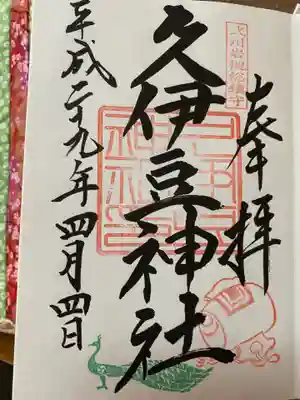 奉拝
久伊豆神社
平成二十九年四月四日